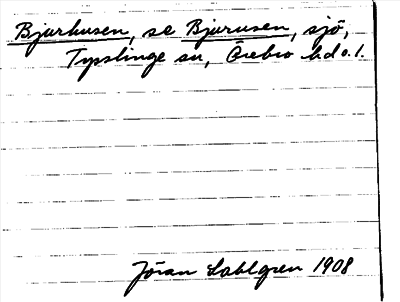 Bjurhusen, se Bjurusen, sjö,
Tysslinge sn, Örebro hd o. l.
Jöran Sahlgren 1908